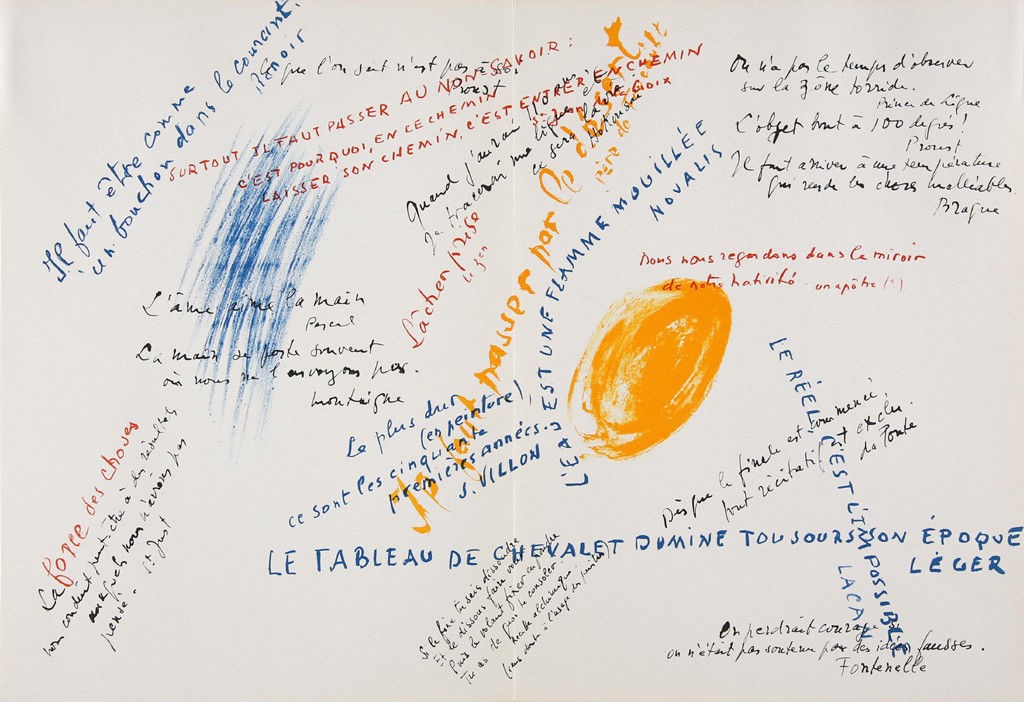 Il faut être comme
un bouchon dans le courant.
Renoir
que l'on sait n'est pas
Proust
SURTOUT IL FAUT PASSER AU NON SAVOIR :
C'EST POURQUOI, EN CE CHEMIN
LAISSER SON CHEMIN, C'EST ENTRER EN CHEMIN
CROIX
Quand j'aurai 110 ans
je tracerai une ligne et
ce sera la vie.
Hokusai
Il faut passer par le désert
père de
L'EAU EST UNE FLAMME MOUILLÉE
NOVALIS
On n'a pas le temps d'observer
sur la zône torride.
Prince de Ligne
L'objet bout à 100 degrés !
Proust
Il faut arriver à une température
qui rende les choses malléables.
Braque
Nous nous regardons dans le miroir
de notre nativité. un apôtre (?)
L'âme aime la main
Pascal
La main se porte souvent
où nous ne l'envoyons pas.
Montaigne
Lâcher prise
le zen
Le plus dur
(en peinture)
ce sont les cinquante
premières années.
J. VILLON
La force des choses
nous conduit peut-être à des résultats
auxquels nous n'avions pas
pensé.
St Just
LE RÉEL C'EST L'IMPOSSIBLE
LACAN
Dès que le finale est commencé,
tout récitatif est exclu.
da Ponte
LE TABLEAU DE CHEVALET DOMINE TOUJOURS SON ÉPOQUE
LÉGER
Si le fixe tu sais dissoudre
Et le dissous faire voler
Puis le volant fixer en poudre
Tu as de quoi te consoler.
On perdrait courage si
on n'était pas soutenu par des idées fausses.
Fontenelle